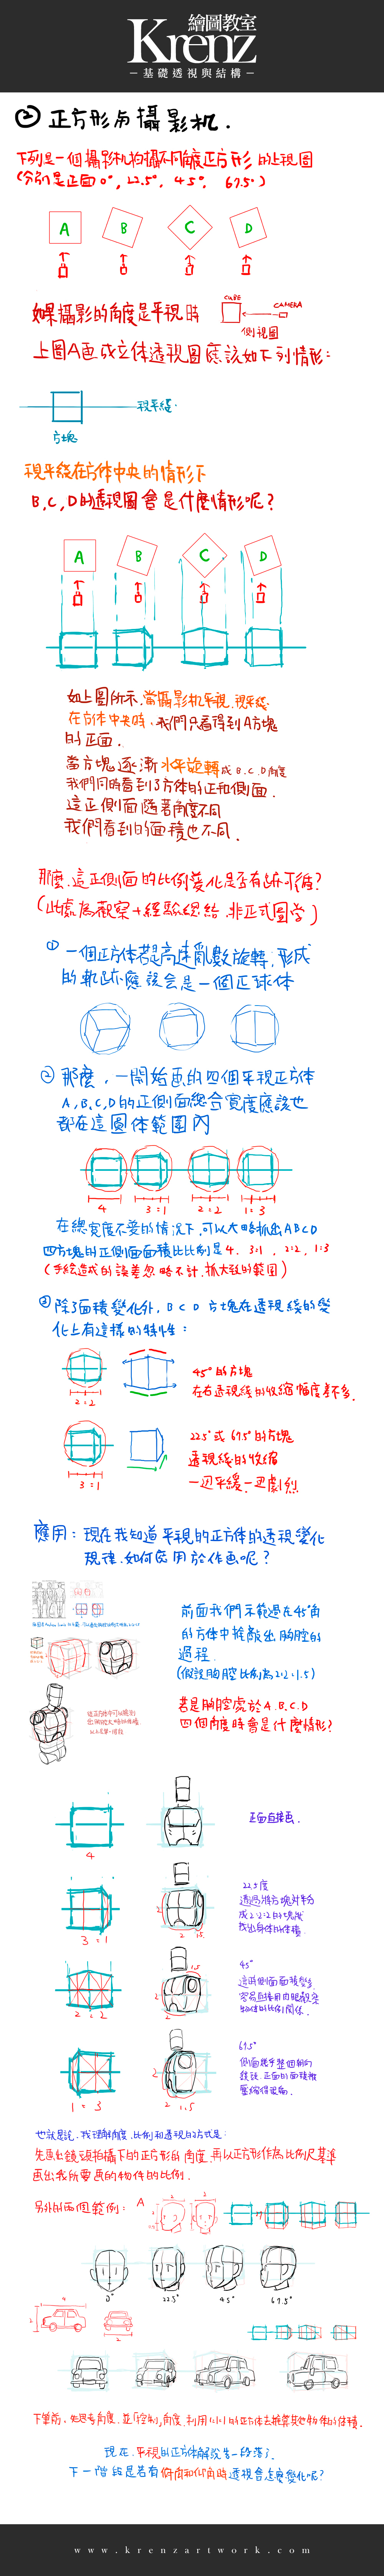 繪圖教室
Krenz
－ 基 礎 透 視 與 結 構 －
② 正方形与攝影机．
下列是一個攝影机拍攝不同角度正方形的上視圖
(分別是正面0°, 22.5°, 45°, 67.5°)
A B C D
如果攝影的角度是平視時
CUBE
CAMERA
側視圖
上圖A画成立体透視圖應該如下列情形：
視平線
方塊
視平線在方体中央的情形下
B, C, D的透視圖會是什麼情形呢？
A B C D
如上圖所示，當攝影机平視，視平線
在方体中央時，我們只看得到A方塊
的正面．
當方塊逐漸水平旋轉成B.C.D角度
我們同時看到方体的正和側面．
這正側面隨著角度不同
我們看到的面積也不同．
那麼，這正側面的比例變化是否有跡可循？
(此處為觀察+經驗總結，非正式圖學)
① 一個正方体若是高速亂數旋轉，形成
的軌跡應該會是一個正球体
② 那麼，一開始画的四個平視正方体
A,B,C,D的正側面總合寬度應該也
都在這圓体範圍內
4 3：1 2：2 1：3
在總寬度不變的情況下，可以大略抓出ABCD
四方塊的正側面面積比比例是4, 3:1, 2:2, 1:3
(手繪造成的誤差忽略不計，抓大致的範圍)
③ 除了面積變化外，B C D 方塊在透視線的變
化上有這樣的特性：
45°的方塊
左右透視線的收縮幅度差不多．
2：2
22.5°或67.5°的方塊
透視線的收縮
一边平緩，一边劇烈
3：1
應用：現在我知道平視的正方体的透視變化
規律，如何應用於作画呢？
前面我們示範過在45°角
的方体中推敲出胸腔的
過程．
(假設胸腔比例為2:2:1.5)
若是胸腔處於A.B.C.D
四個角度時會是什麼情形？
4
正面直接画．
3：1
2 1.5
22.5度
透過將方塊對半分
成2:2:2的塊度
找出身体的体積．
2：2
2 2 1.5
45°
這時側面面積變多
容易直接用肉眼觀察
物体的比例關係．
1：3
2 2 1.5
67.5°
側面幾乎整個朝向
鏡頭，正面的面積被
壓縮得更扁．
也就是說，我理解角度、比例和透視的方式是：
先画出鏡頭拍攝下的正方形的角度，再以正方形作為比例尺基準
画出我所要画的物件的比例．
另外的兩個範例：
A
0° 22.5° 45° 67.5°
4 2 2
下筆前，先思考角度，並「控制」角度，利用1:1:1的正方体去推算其他物体的体積．
現在，平視的正方体解說告一段落了．
下一階段是若有俯角和仰角時透視會怎麼變化呢？
w w w . k r e n z a r t w o r k . c o m